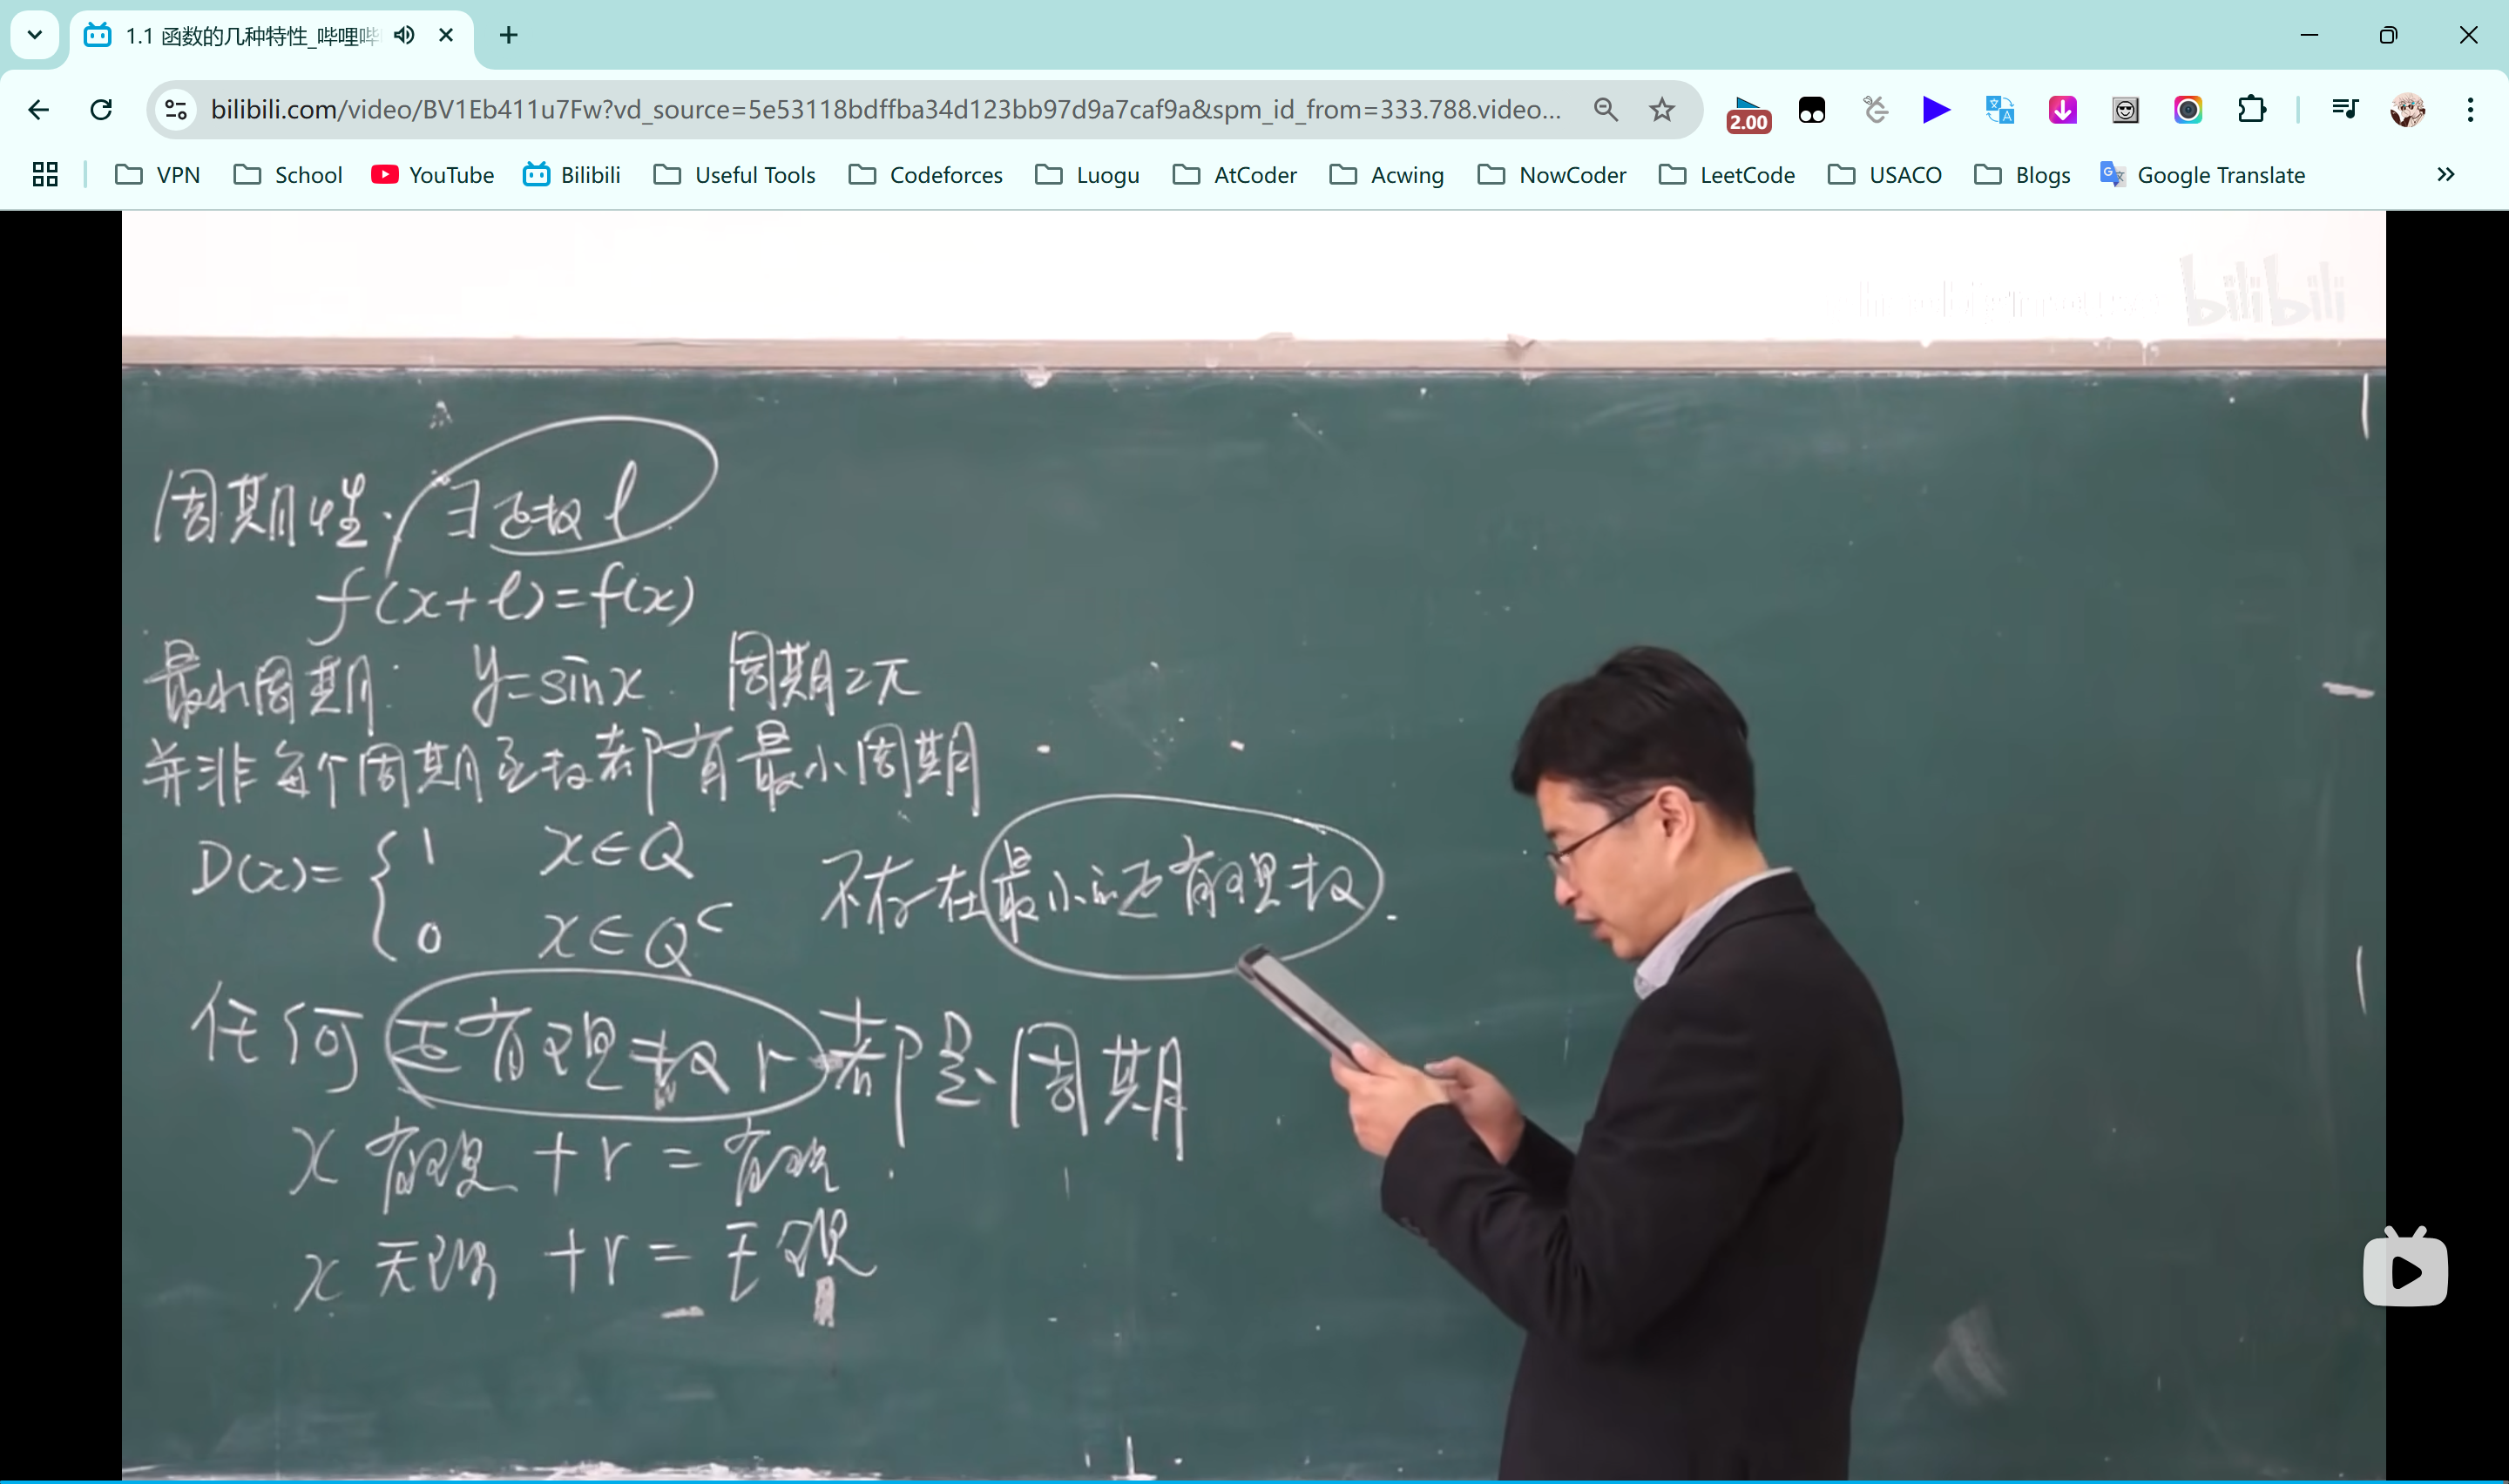 1.1 函数的几种特性_哔哩哔
bilibili.com/video/BV1Eb411u7Fw?vd_source=5e53118bdffba34d123bb97d9a7caf9a&spm_id_from=333.788.video...
2.00
VPN School YouTube Bilibili Useful Tools Codeforces Luogu AtCoder Acwing NowCoder LeetCode USACO Blogs Google Translate
bilibili
周期性. ∃正数 l
f(x+l)=f(x)
最小周期: y=sinx. 周期2π
并非每个周期函数都有最小周期.
D(x)={ 1 x∈Q
0 x∈Qᶜ
不存在最小的正有理数.
任何正有理数 r 都是周期
x 有理 +r = 有理.
x 无理 +r = 无理